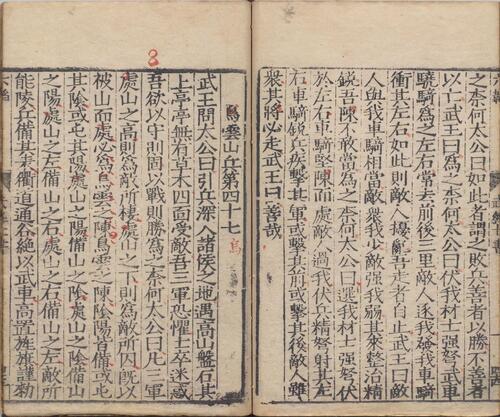 之柰何太公曰如此者謂之敗兵善者以勝不善者
以亡武王曰爲之柰何太公曰伏我材士强弩武車
驍騎爲之左右常去前後三里敵人逐我發我車騎
衝其左右如此則敵人擾亂吾走者自止武王曰敵
人與我車騎相當敵衆我少敵强我弱其來整治精
銳吾陳不敢當爲之柰何太公曰選我材士强弩伏
於左右車騎堅陳而處敵人過我伏兵積弩射其左
右車騎銳兵疾擊其軍或擊其前或擊其後敵人雖
衆其將必走武王曰善哉
鳥雲山兵第四十七 烏
武王問太公曰引兵深入諸侯之地遇高山盤石其
上亭亭無有草木四面受敵吾三軍恐懼士卒迷惑
吾欲以守則固以戰則勝爲之柰何太公曰凡三軍
處山之高則爲敵所棲處山之下則爲敵所囚旣以
被山而處必爲鳥雲之陳鳥雲之陳陰陽皆備或屯
其陰或屯其陽處山之陽備山之陰處山之陰備山
之陽處山之左備山之右處山之右備山之左敵所
能陵兵備其表衢道通谷絶以武車高置旌旗謹勑
8